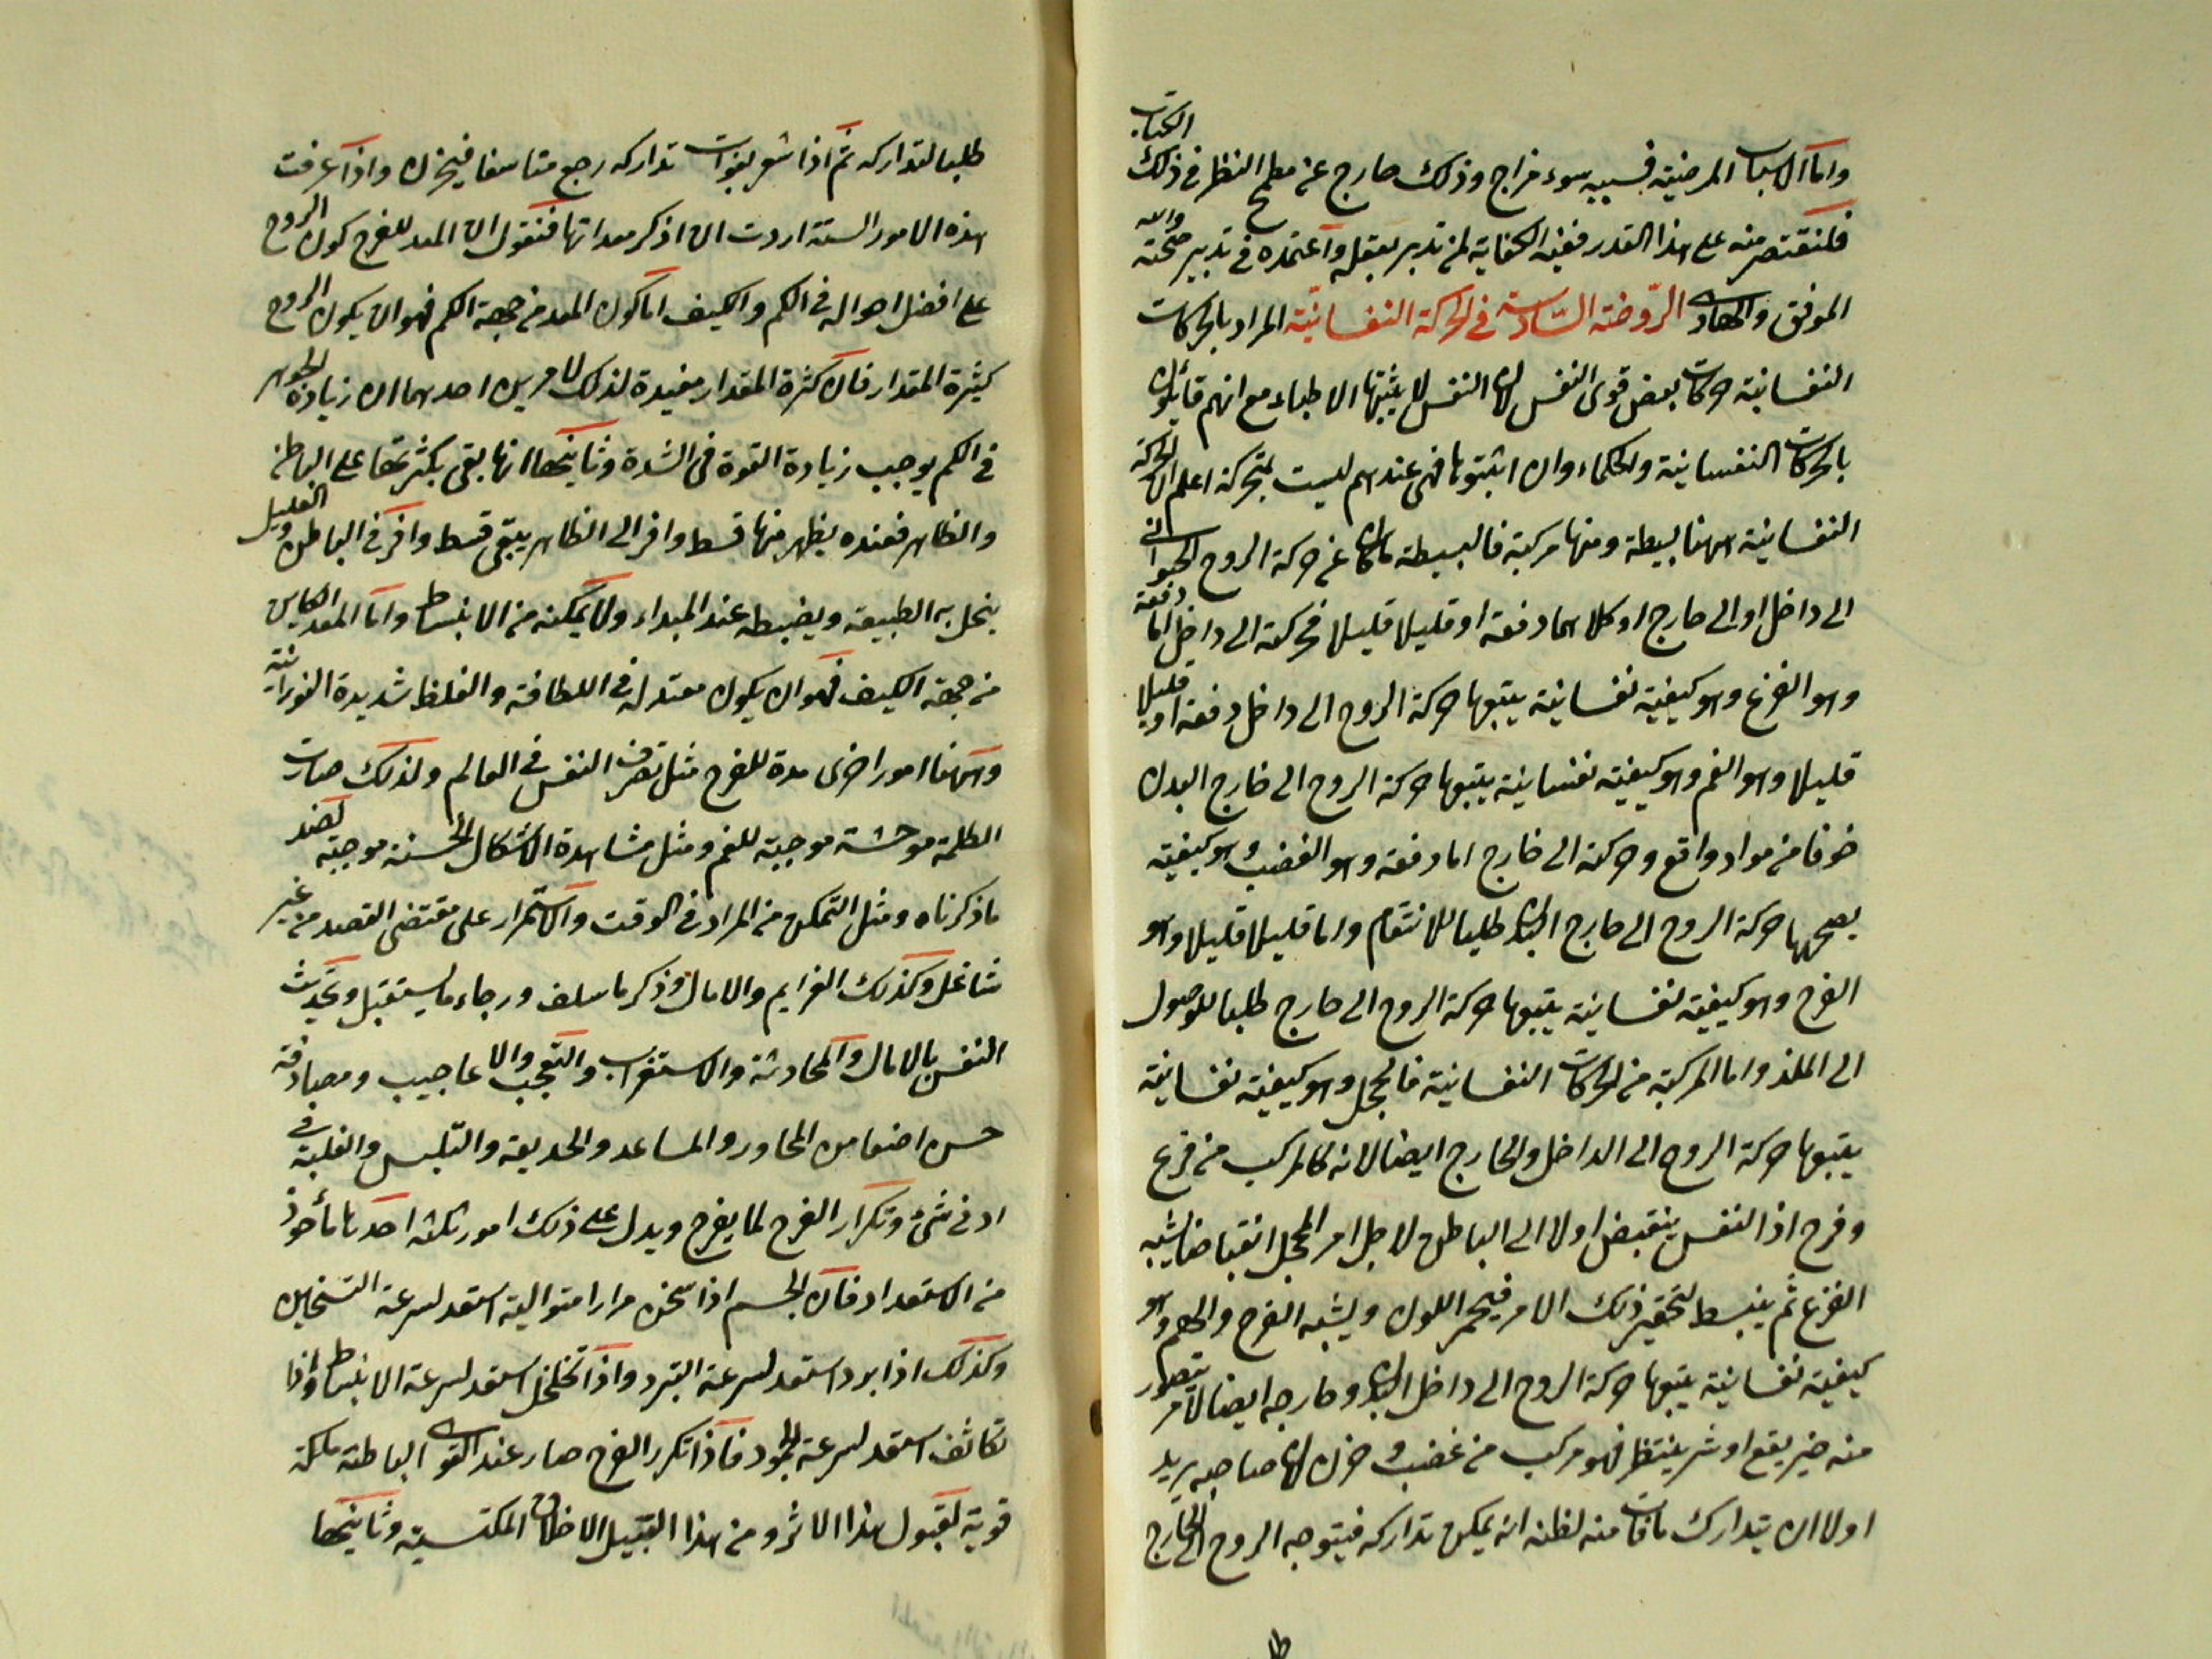 واما الاسباب المرضية فسببه سوء مزاج وذلك خارج عن مطمح النظر في ذلك الكتاب
فلنقتصر منه على هذا القدر ففيه الكفاية لمن تدبر بعقله واعتمده في تدبير صحته والله
الموفق والهادى الروضة السادسة في الحركة النفسانية المراد بالحركات
النفسانية حركات بعض قوى النفس لان النفس لا يثبتها الاطباء مع انهم قائلون
بالحركات النفسانية والحكماء وان اثبتوها فهي عندهم ليست بمتحركة اعلم ان الحركة
النفسانية منها بسيطة ومنها مركبة فالبسيطة ما كان عن حركة الروح الحيوانى
الى داخل او الى خارج او كلاهما دفعة او قليلا قليلا فحركته الى داخل اما دفعة
وهو الفزع وهو كيفية نفسانية يتبعها حركة الروح الى داخل دفعة او قليلا
قليلا وهو الغم وهو كيفية نفسانية يتبعها حركة الروح الى خارج البدن
خوفا من مواد واقع وحركته الى خارج اما دفعة وهو الغضب وهو كيفية
يصحبها حركة الروح الى خارج البدن طلبا للانتقام واما قليلا قليلا وهو
الفرح وهو كيفية نفسانية يتبعها حركة الروح الى خارج طلبا للوصول
الى الملذ واما المركبة من الحركات النفسانية فالخجل وهو كيفية نفسانية
يتبعها حركة الروح الى الداخل والخارج ايضا لانه كالمركب من فزع
وفرح اذ النفس ينقبض اولا الى الباطن لاجل امر المخجل انقباضا يشبه
الفزع ثم ينبسط لتحقير ذلك الامر فيحمر اللون ويشبه الفرح والهم وهو
كيفية نفسانية يتبعها حركة الروح الى داخل البدن وخارجه ايضا لامر يتصور
منه خير يقع او شر ينتظر فهو مركب من غضب وحزن لان صاحبه يريد
اولا ان يتدارك ما فات منه لظنه انه يمكن تداركه فيتوجه الروح الى الخارج
طلبا لتداركه ثم اذا شعر بفوات تداركه رجع متاسفا فيحزن واذا عرفت
هذه الامور الستة اردت ان اذكر معداتها فنقول ان المعد للفرح كون الروح
على افضل احواله في الكم والكيف اما كون المعد من جهة الكم فهو ان يكون الروح
كثيرة المقدار فان كثرة المقدار مفيدة لذلك لامرين احدهما ان زيادة الجوهر
في الكم يوجب زيادة القوة فى الشدة وثانيتها انها بقى بكثرتها على الباطن
والظاهر فعنده يظهر منها قسط وافر الى الظاهر يبقى قسط وافر في الباطن والقليل
ينحل به الطبيعة ويضبطه عند المبداء ولا يمكنه من الانبساط واما المعد الكاين
من جهة الكيف فهو ان يكون معتدل في اللطافة والغلظ شديدة النورانية
وههنا امور اخرى معدة للفرح مثل تصرف النفس في العالم ولذلك صارت
الظلمة موحشة موجبة للغم ومثل مشاهدة الاشكال الحسنة موجبة لضد
ما ذكرناه ومثل التمكن من المراد في الوقت والاستمرار على مقتضى القصد من غير
شاغل وكذلك العزايم والامال وذكر ما سلف ورجاء ما يستقبل وتحديث
النفس بالامال والمحادثة والاستغراب والتعجب والاعاجيب ومصادفة
حسن اصغا من المحاور والمساعد والخديعة والتلبس والغلبة في
ادنى شئ وتكرار الفرح لما يفرح ويدل على ذلك امور ثلثة احدها مأخوذ
من الاستعداد فان الجسم اذا سخن مرارا متوالية استعد لسرعة التسخين
وكذلك اذا برد استعد لسرعة التبرد واذا تخلخل استعد لسرعة الانبساط واذا
تكاثف استعد لسرعة الجمود فاذا تكرر الفرح صار عند القوى الباطنة ملكة
قوية لقبول هذا الاثر ومن هذا القبيل الاخلاق المكتسبة وثانيتها